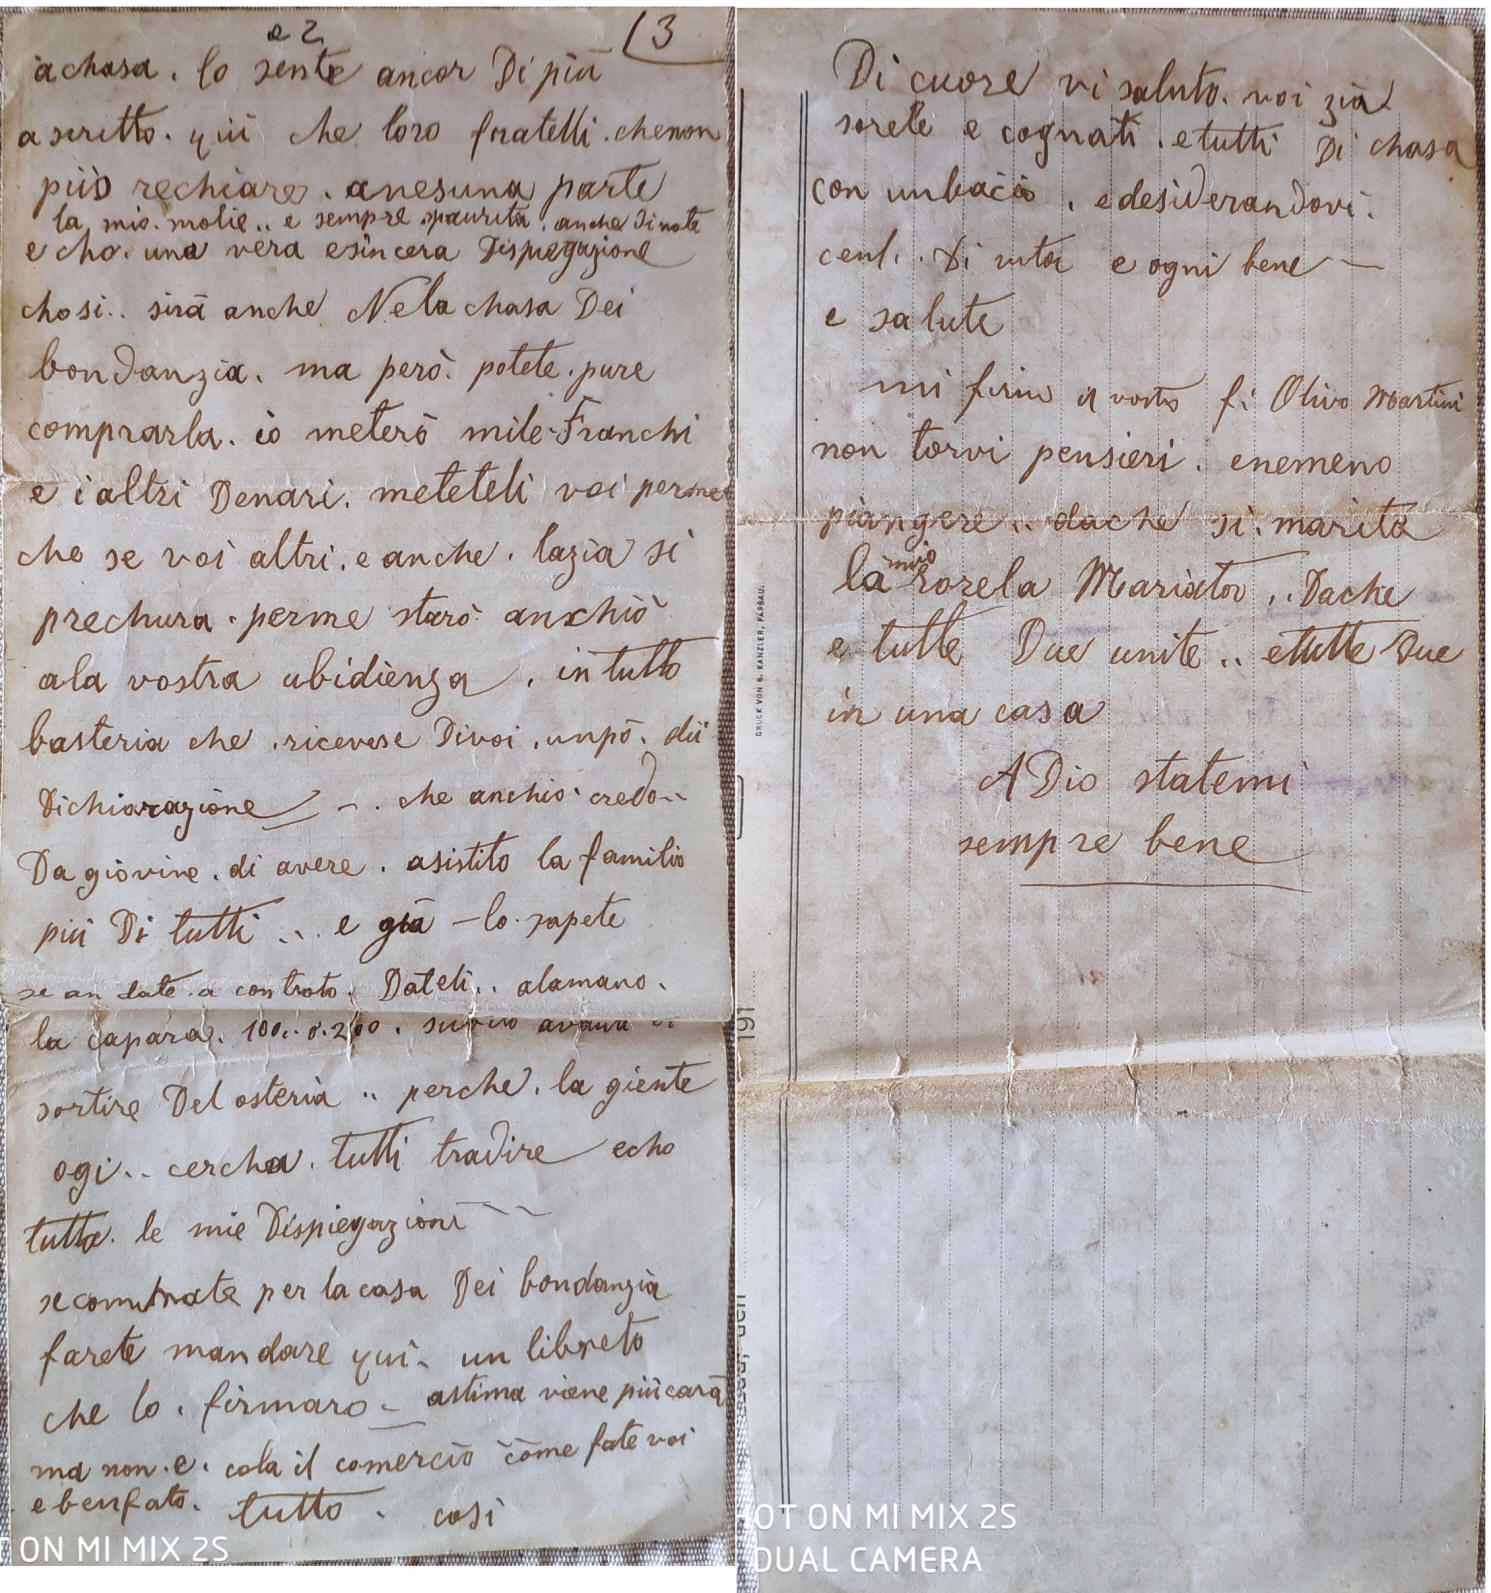 e 2
(3
a chasa. lo sente ancor Di più
a scritto. qui che loro fratelli. chenon
più rechiare. anesuna parte
la mia molie.. e sempre spaurita. anche di note
e cho. una vera esincera Dispiegazione
chosi.. sirà anche Nela chasa Dei
bondanzia. ma però. potete. pure
comprarla. io meterò mile Franchi
e i altri Denari. meteteli voi perme
che se voi altri. e anche. lazia si
prechura. perme starò anchiò
ala vostra ubidienza. in tutto
basteria che. ricevese Divoi. unpò. di
Dichiarazione - . che anchio credo..
Da giovine. di avere. asistito la familia
più Di tutti ... e già - lo sapete
se an date a contrato. Dateli.. alamano.
la capara. 100.. o. 200. avanti di
sortire Del osteria .. perche. la giente
ogi.. cercha. tutti tradire echo
tutte. le mie Dispiegazioni
se combinate per la casa Dei bondanzia
farete mandare qui. un libreto
che lo. firmaro - astima viene più cara
ma non. e. cola il comercio come fate voi
e benfato. tutto. cosi
Di cuore vi saluto. voi zia
sorele e cognati. e tutti Di chasa
con unbacio. e desiderandovi.
cent.. Di vita e ogni bene -
e salute
mi firmo il vostro f: Olivo Martini
non torvi pensieri. enemeno
piangere.. dache si. marita
la mia sorela Mariata.. Dache
e tutte Due unite.. etutte Due
in una casa
A Dio statemi
sempre bene
DRUCK VON B. KANZLER, PASSAU.
191
OT ON MI MIX 2S
DUAL CAMERA
ON MI MIX 2S